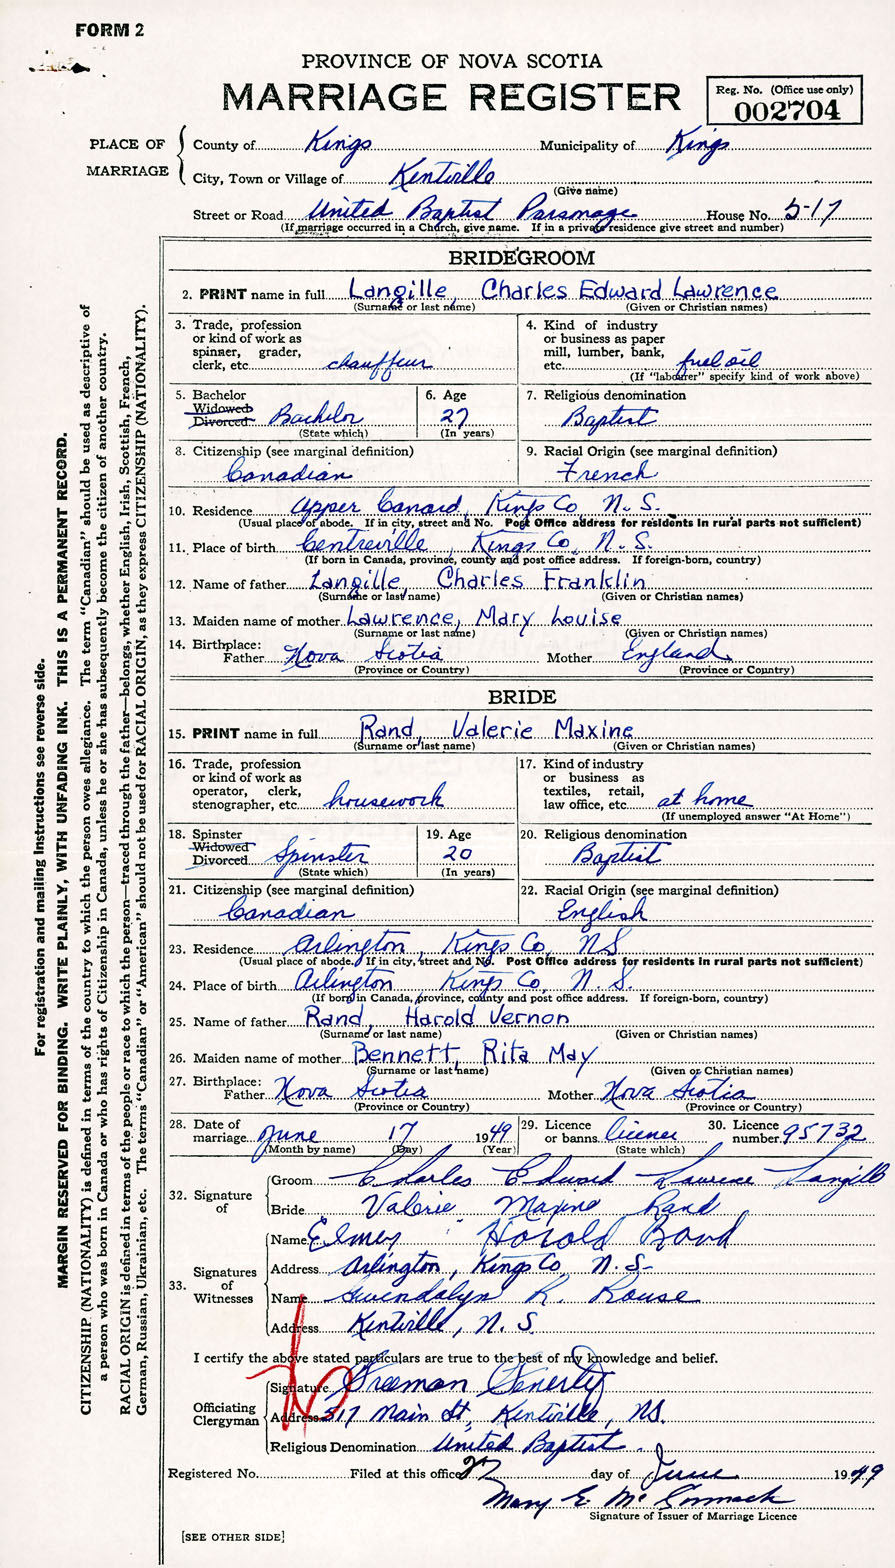 FORM 2
PROVINCE OF NOVA SCOTIA
MARRIAGE REGISTER
Reg. No. (Office use only)
002704
PLACE OF MARRIAGE
County of Kings Municipality of Kings
City, Town or Village of Kentville
(Give name)
Street or Road United Baptist Parsonage House No. 517
(If marriage occurred in a Church, give name. If in a private residence give street and number)
BRIDEGROOM
2. PRINT name in full Langille, Charles Edward Lawrence
(Surname or last name) (Given or Christian names)
3. Trade, profession or kind of work as spinner, grader, clerk, etc. chauffeur
4. Kind of industry or business as paper mill, lumber, bank, etc. fuel oil
(If "laborer" specify kind of work above)
5. Bachelor Widowed Divorced Bachelor
(State which)
6. Age 27
(In years)
7. Religious denomination
Baptist
8. Citizenship (see marginal definition)
Canadian
9. Racial Origin (see marginal definition)
French
10. Residence Upper Canard, Kings Co, N. S.
(Usual place of abode. If in city, street and No. Post Office address for residents in rural parts not sufficient)
11. Place of birth Centreville, Kings Co, N. S.
(If born in Canada, province, county and post office address. If foreign-born, country)
12. Name of father Langille, Charles Franklin
(Surname or last name) (Given or Christian names)
13. Maiden name of mother Lawrence, Mary Louise
(Surname or last name) (Given or Christian names)
14. Birthplace: Father Nova Scotia Mother England
(Province or Country) (Province or Country)
BRIDE
15. PRINT name in full Rand, Valerie Maxine
(Surname or last name) (Given or Christian names)
16. Trade, profession or kind of work as operator, clerk, stenographer, etc. housework
17. Kind of industry or business as textiles, retail, law office, etc. at home
(If unemployed answer "At Home")
18. Spinster Widowed Divorced Spinster
(State which)
19. Age 20
(In years)
20. Religious denomination
Baptist
21. Citizenship (see marginal definition)
Canadian
22. Racial Origin (see marginal definition)
English
23. Residence Arlington, Kings Co, NS
(Usual place of abode. If in city, street and No. Post Office address for residents in rural parts not sufficient)
24. Place of birth Arlington Kings Co, N. S.
(If born in Canada, province, county and post office address. If foreign-born, country)
25. Name of father Rand, Harold Vernon
(Surname or last name) (Given or Christian names)
26. Maiden name of mother Bennett, Rita May
(Surname or last name) (Given or Christian names)
27. Birthplace: Father Nova Scotia Mother Nova Scotia
(Province or Country) (Province or Country)
28. Date of marriage June 17 1949
(Month by name) (Day) (Year)
29. Licence or banns license
(State which)
30. Licence number 95732
32. Signature of
Groom Charles Edward Lawrence Langille
Bride Valerie Maxine Rand
33. Signatures of Witnesses
Name Elmer Harold
Address Arlington, Kings Co, N. S.
Name Gwendalyn K. Rouse
Address Kentville, N. S.
I certify the above stated particulars are true to the best of my knowledge and belief.
Officiating Clergyman
Signature Freeman Fenerty
Address 517 Main St, Kentville, NS.
Religious Denomination United Baptist
Registered No. Filed at this office 27 day of June 1949
Mary E. McCormack
Signature of Issuer of Marriage Licence
[SEE OTHER SIDE]
For registration and mailing instructions see reverse side.
MARGIN RESERVED FOR BINDING. WRITE PLAINLY, WITH UNFADING INK. THIS IS A PERMANENT RECORD.
CITIZENSHIP (NATIONALITY) is defined in terms of the country to which the person owes allegiance. The term "Canadian" should be used as descriptive of
a person who was born in Canada or who has rights of Citizenship in Canada, unless he or she has subsequently become the citizen of another country.
RACIAL ORIGIN is defined in terms of the people or race to which the person—traced through the father—belongs, whether English, Irish, Scottish, French,
German, Russian, Ukrainian, etc. The terms "Canadian" or "American" should not be used for RACIAL ORIGIN, as they express CITIZENSHIP (NATIONALITY).